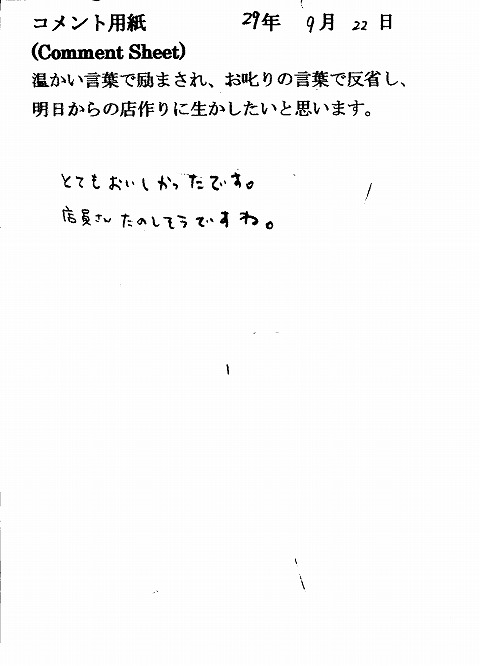 コメント用紙 29年 9月 22日
(Comment Sheet)
温かい言葉で励まされ、お叱りの言葉で反省し、
明日からの店作りに生かしたいと思います。
とてもおいしかったです。
店員さんたのしそうですね。